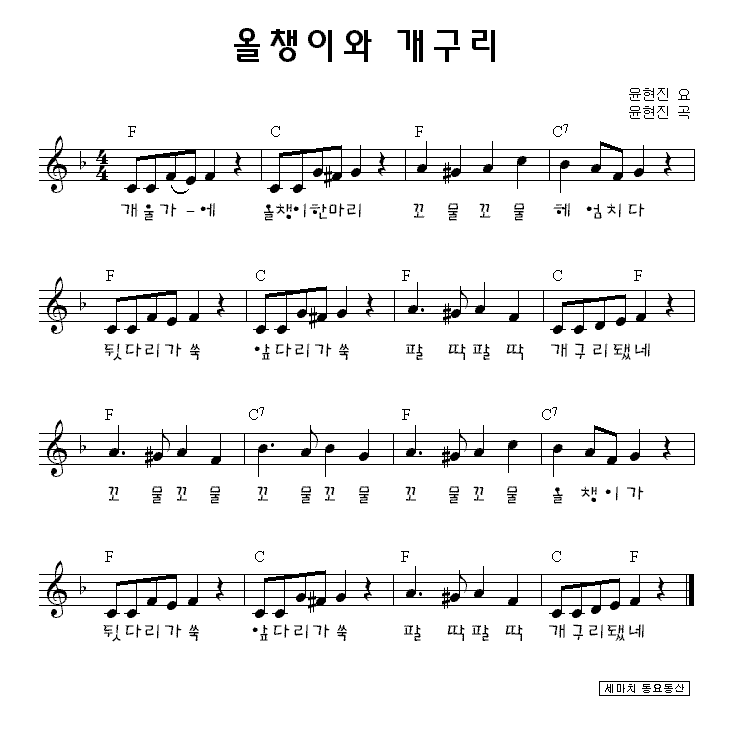 올챙이와 개구리
윤현진 요
윤현진 곡
F C F C7
4
4
개울가-에 올챙이한마리 꼬물꼬물 헤엄치다
F C F C F
뒷다리가쑥 앞다리가쑥 팔딱팔딱 개구리됐네
F C7 F C7
꼬물꼬물 꼬물꼬물 꼬물꼬물 올챙이가
F C F C F
뒷다리가쑥 앞다리가쑥 팔딱팔딱 개구리됐네
세마치 동요동산